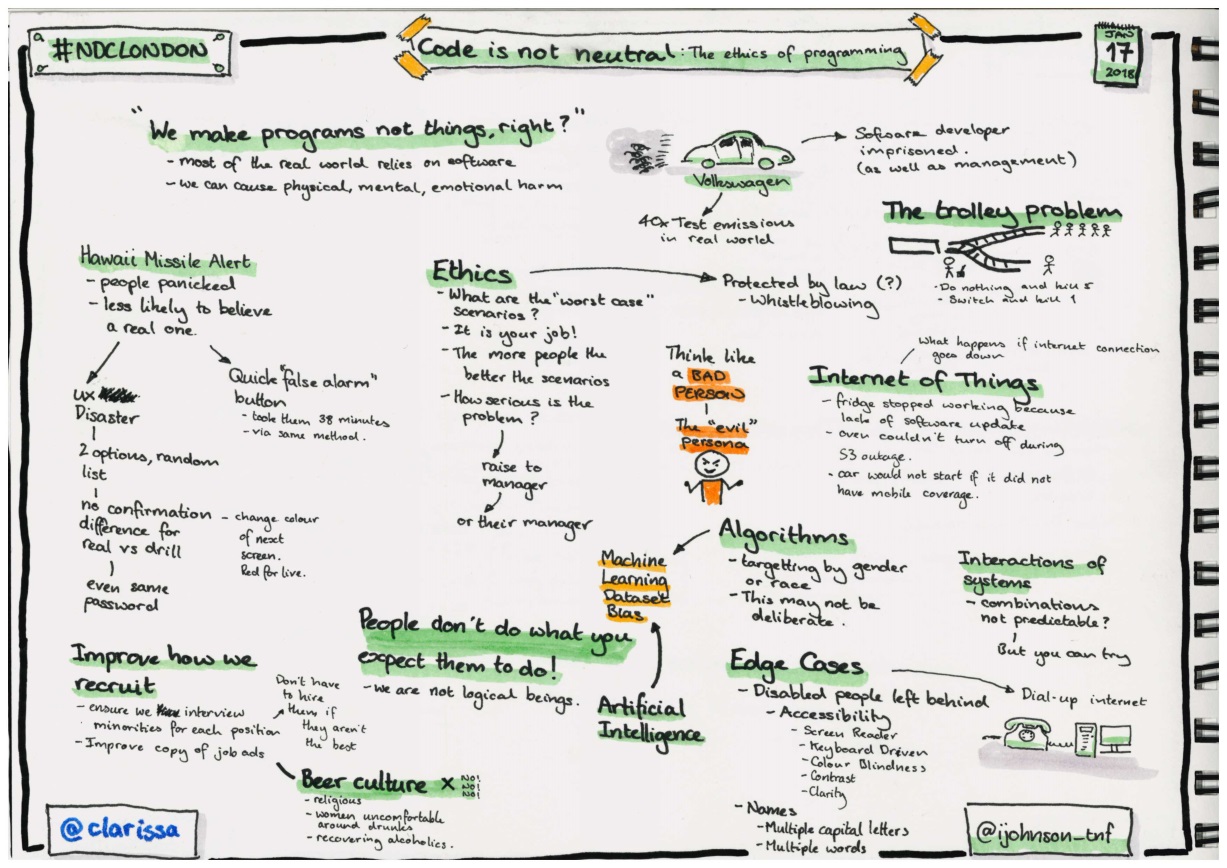 #NDCLONDON
Code is not neutral: The ethics of programming
JAN
17
2018
"We make programs not things, right?"
- most of the real world relies on software
- we can cause physical, mental, emotional harm
Volkswagen
Software developer
imprisoned.
(as well as management)
40x Test emissions
in real world
The trolley problem
- Do nothing and kill 5
- Switch and kill 1
Hawaii Missile Alert
- people panicked
- less likely to believe
a real one.
UX
Disaster
2 options, random
list
no confirmation
difference for
real vs drill
even same
password
- change colour
of next
screen.
Red for live.
Quick "false alarm"
button
- took them 38 minutes
- via same method.
Ethics
- What are the "worst case"
scenarios?
- It is your job!
- The more people the
better the scenarios
- How serious is the
problem?
raise to
manager
or their manager
Protected by law (?)
- Whistleblowing
Think like
a BAD
PERSON
The "evil"
persona
What happens if internet connection
goes down
Internet of Things
- fridge stopped working because
lack of software update
- oven couldn't turn off during
S3 outage.
- car would not start if it did not
have mobile coverage.
Algorithms
- targetting by gender
or race
- This may not be
deliberate.
Machine
Learning
Dataset
Bias
Artificial
Intelligence
Interactions of
systems
- combinations
not predictable?
But you can try
People don't do what you
expect them to do!
- we are not logical beings.
Improve how we
recruit
- ensure we interview
minorities for each position
- Improve copy of job ads
Don't have
to hire
them if
they aren't
the best
Beer culture x NO!
NO!
NO!
- religious
- women uncomfortable
around drunks
- recovering alcoholics.
Edge Cases
- Disabled people left behind
- Accessibility
- Screen Reader
- Keyboard Driven
- Colour Blindness
- Contrast
- Clarity
- Names
- Multiple capital letters
- Multiple words
Dial-up internet
@clarissa
@ijohnson_tnf